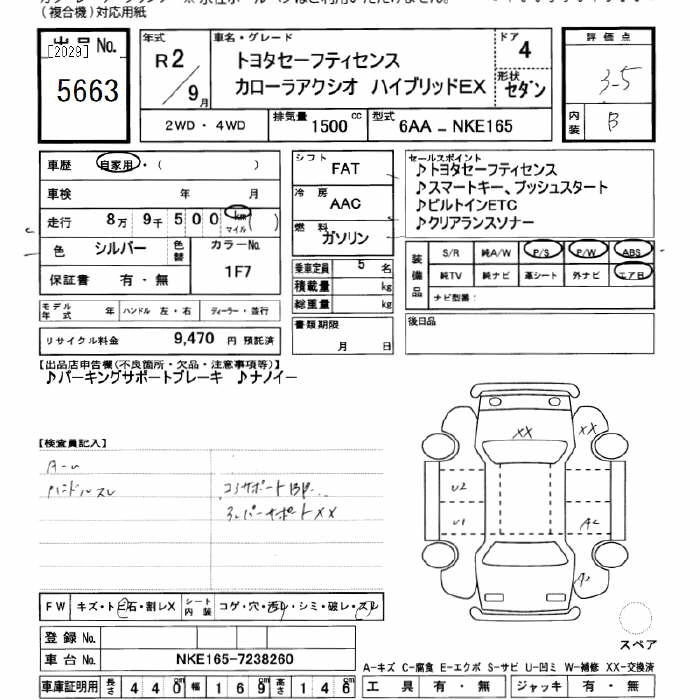 (複合機)対応用紙
出品 No.
[2029]
5663
年式
R2/9月
車名・グレード
トヨタセーフティセンス
カローラアクシオ ハイブリッドEX
ドア
4
形状
セダン
2WD・4WD
排気量 1500 cc
型式 6AA - NKE165
評価点
3-5
内装 B
車歴 自家用・( )
車検 年 月
走行 8万 9千 500 km マイル ( )
色 シルバー 色替
カラーNo.
1F7
保証書 有・無
シフト FAT
冷房 AAC
燃料 ガソリン
乗車定員 5 名
積載量 kg
総重量 kg
書類期限
月 日
セールスポイント
♪トヨタセーフティセンス
♪スマートキー、プッシュスタート
♪ビルトインETC
♪クリアランスソナー
装備品
S/R 純A/W P/S P/W ABS
純TV 純ナビ 革シート 外ナビ エアB
ナビ型番:
後日品
モデル年式 年 ハンドル 左・右 ディーラー・並行
リサイクル料金 9,470 円 預託済
【出品店申告欄(不良箇所・欠品・注意事項等)】
♪パーキングサポートブレーキ ♪ナノイー
【検査員記入】
ハンドルスレ
コアサポートBP
XX
XX
XX
U2
U1
A2
FW キズ・トビ石・割レX シート内装 コゲ・穴・汚レ・シミ・破レ・スレ
登録 No.
車台 No. NKE165-7238260
スペア
A-キズ C-腐食 E-エクボ S-サビ U-凹ミ W-補修 XX-交換済
車庫証明用 長さ 440 幅 169 高さ 146
工具 有・無 ジャッキ 有・無